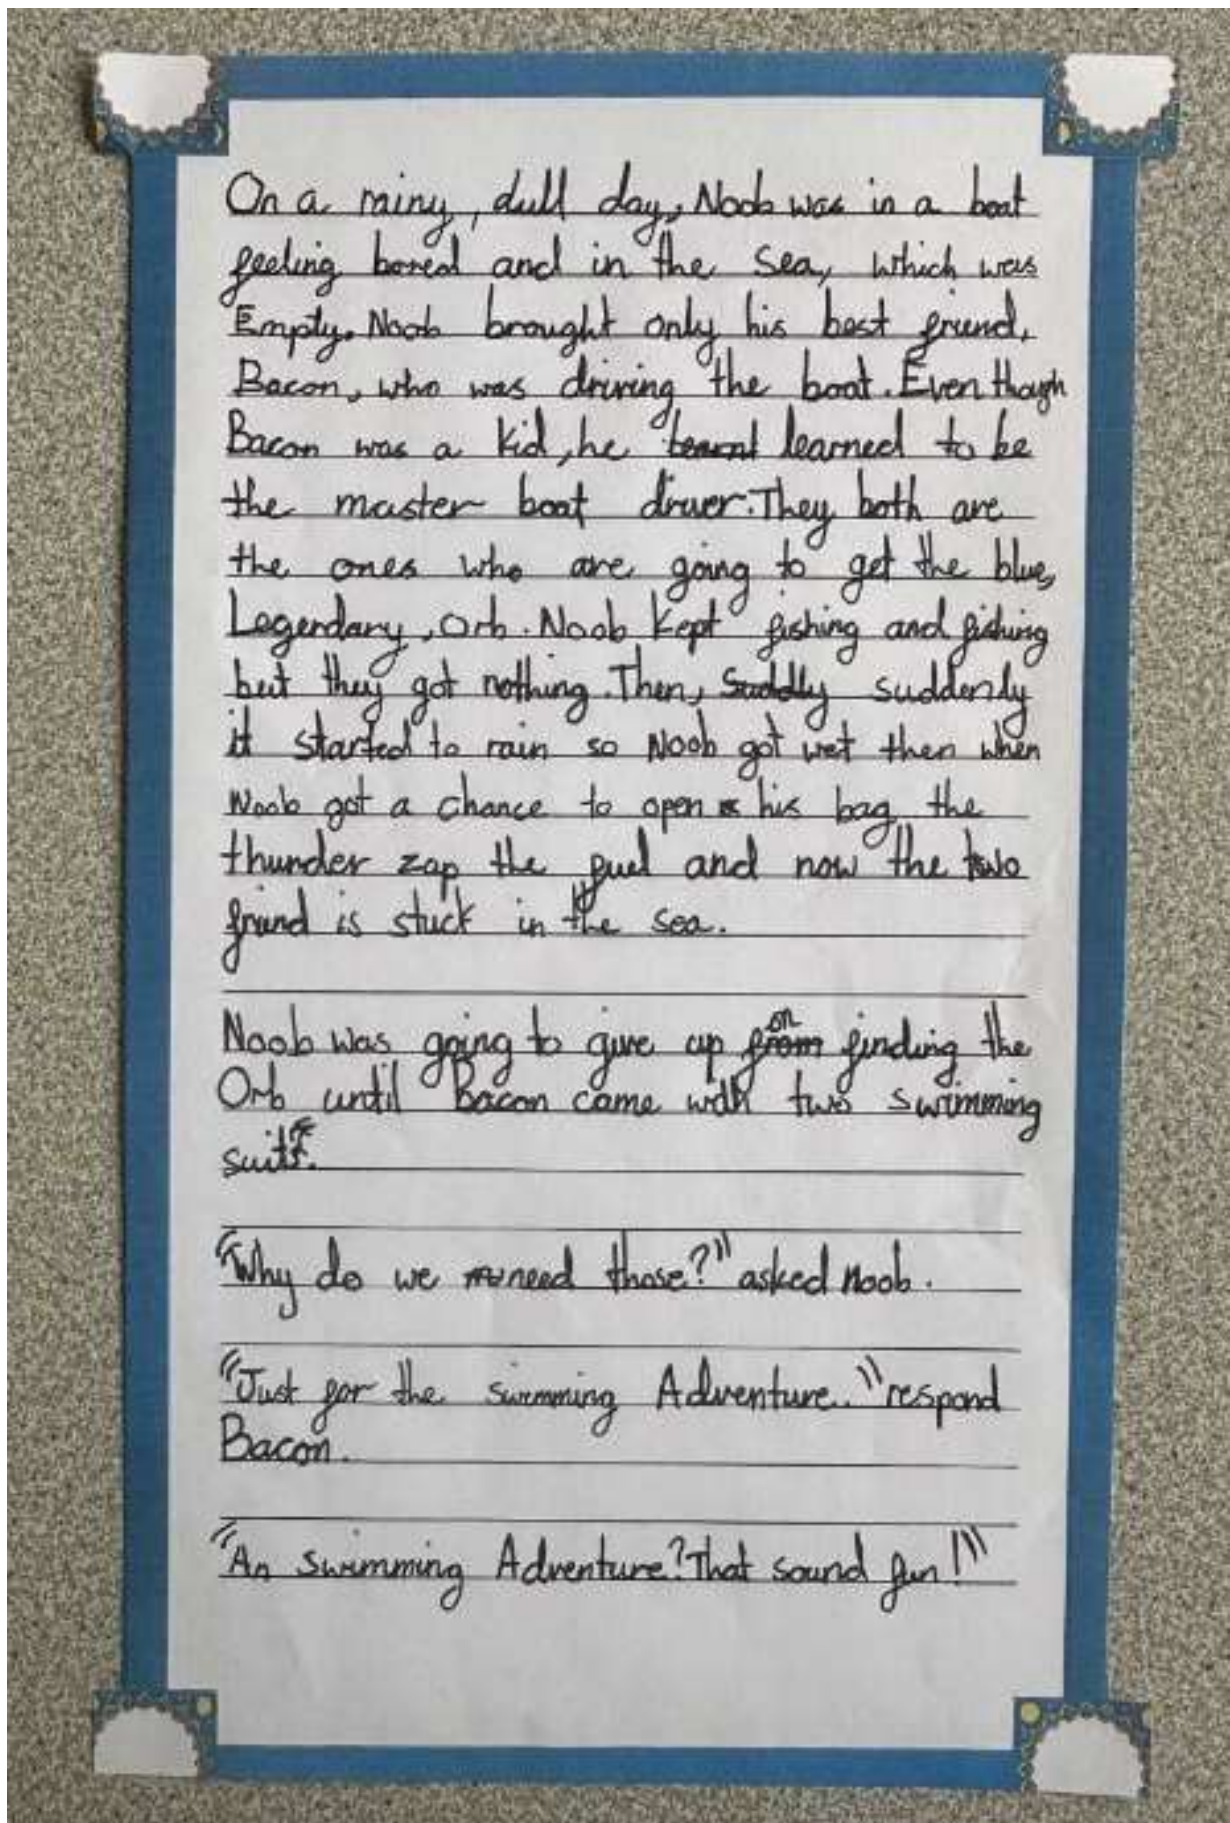 On a rainy, dull day, Noob was in a boat
feeling bored and in the sea, which was
Empty. Noob brought only his best friend,
Bacon, who was driving the boat. Even though
Bacon was a kid, he learned to be
the master boat driver. They both are
the ones who are going to get the blue,
Legendary, Orb. Noob kept fishing and fishing
but they got nothing. Then, Suddly suddenly
it started to rain so Noob got wet then when
Noob got a chance to open his bag the
thunder zap the fuel and now the two
friend is stuck in the sea.
Noob was going to give up from on finding the
Orb until Bacon came with two swimming
suits.
"Why do we need those?" asked Noob.
"Just for the swimming Adventure." respond
Bacon.
"An swimming Adventure? That sound fun!"